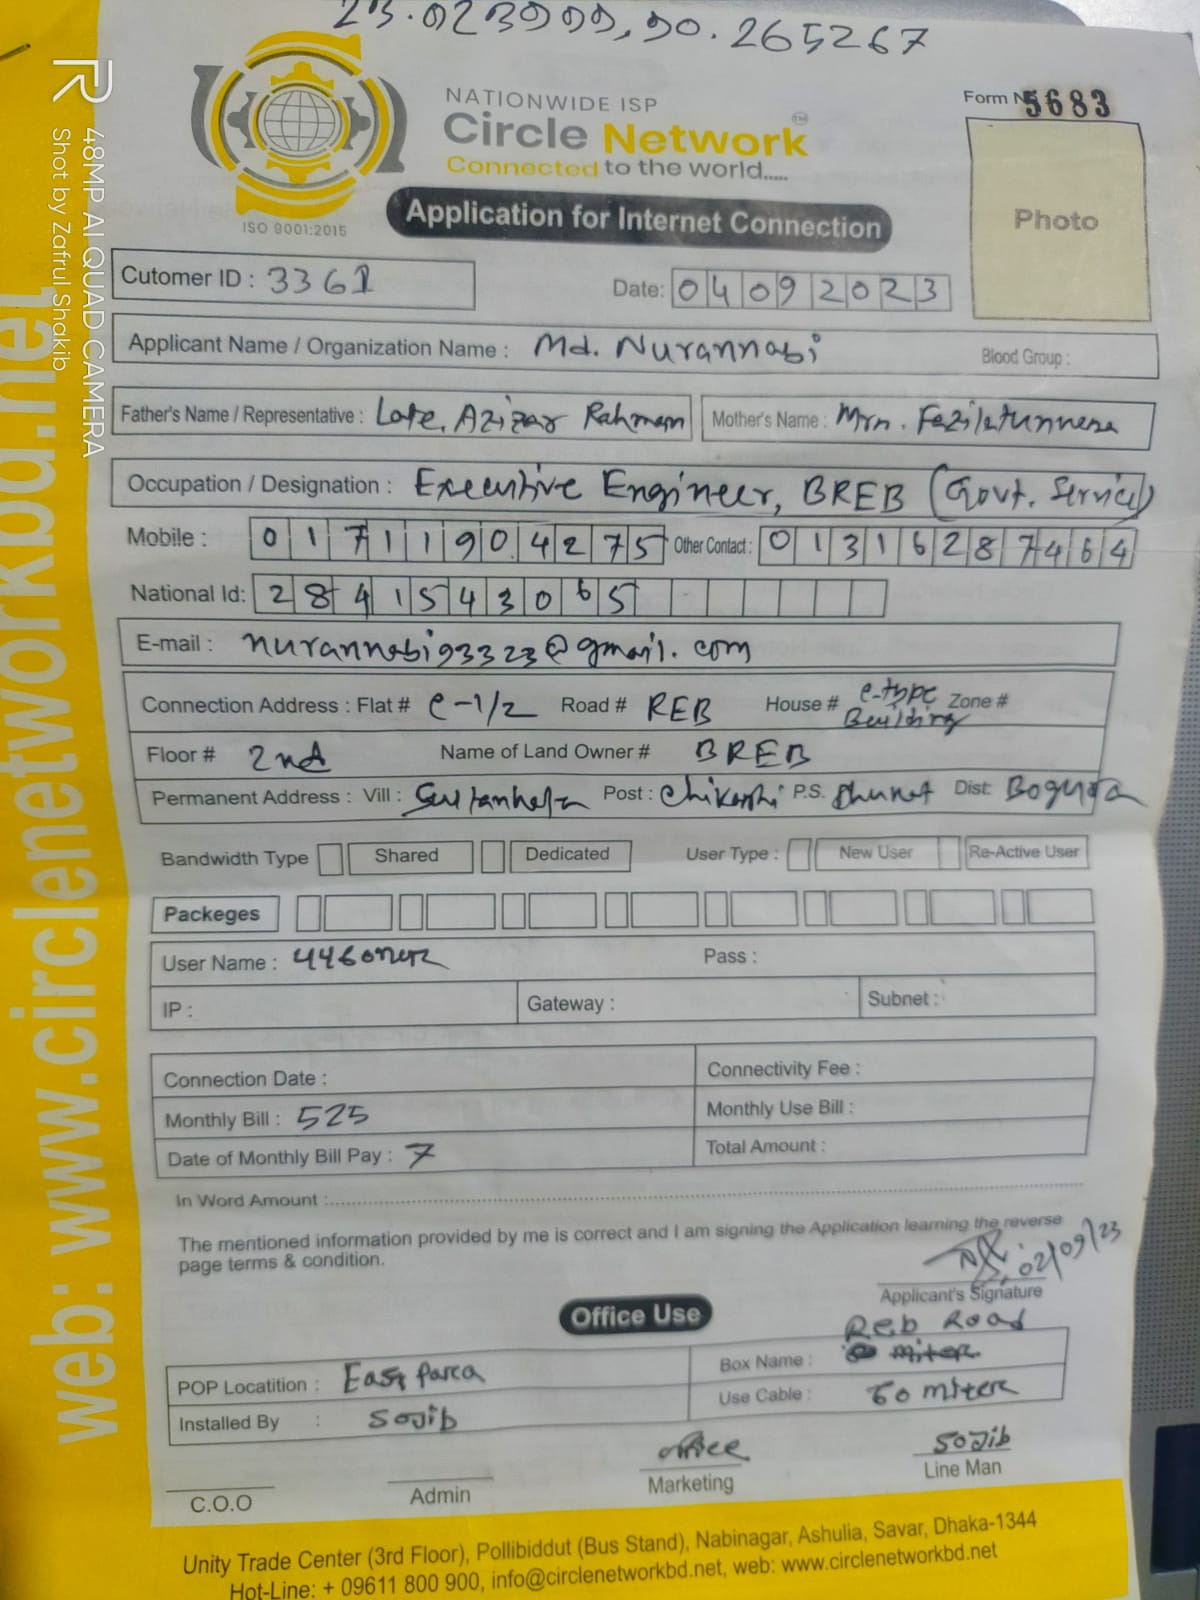 23.923999, 90.265267
NATIONWIDE ISP
Circle Network
TM
Connected to the world.....
ISO 9001:2015
Form N 5683
Photo
Application for Internet Connection
Cutomer ID : 3361
Date: 04092023
Applicant Name / Organization Name : Md. Nurannabi
Blood Group :
Father's Name / Representative : Late, Azizar Rahman
Mother's Name : Mrn. Fazilatunnesa
Occupation / Designation : Executive Engineer, BREB (Govt. Service)
Mobile : 01711904275 Other Contact : 01316287464
National Id: 2841543065
E-mail : nurannabi93323@gmail.com
Connection Address : Flat # e-1/2 Road # REB House # e-type Building Zone #
Floor # 2nd Name of Land Owner # BREB
Permanent Address : Vill : Post : Chikashi P.S. Dhunat Dist: Bogura
Bandwidth Type Shared Dedicated User Type : New User Re-Active User
Packeges
User Name : Pass :
IP : Gateway : Subnet :
Connection Date : Connectivity Fee :
Monthly Bill : 525 Monthly Use Bill :
Date of Monthly Bill Pay : 7 Total Amount :
In Word Amount :
The mentioned information provided by me is correct and I am signing the Application learning the reverse
page terms & condition.
02/09/23
Applicant's Signature
Office Use
Reb Road
POP Locatition : East Parca Box Name : miter
Installed By : Sojib Use Cable : 60 miter
office Sojib
C.O.O Admin Marketing Line Man
Unity Trade Center (3rd Floor), Pollibiddut (Bus Stand), Nabinagar, Ashulia, Savar, Dhaka-1344
Hot-Line: + 09611 800 900, info@circlenetworkbd.net, web: www.circlenetworkbd.net
web: www.circlenetworkbd.net
48MP AI QUAD CAMERA
Shot by Zafrul Shakib